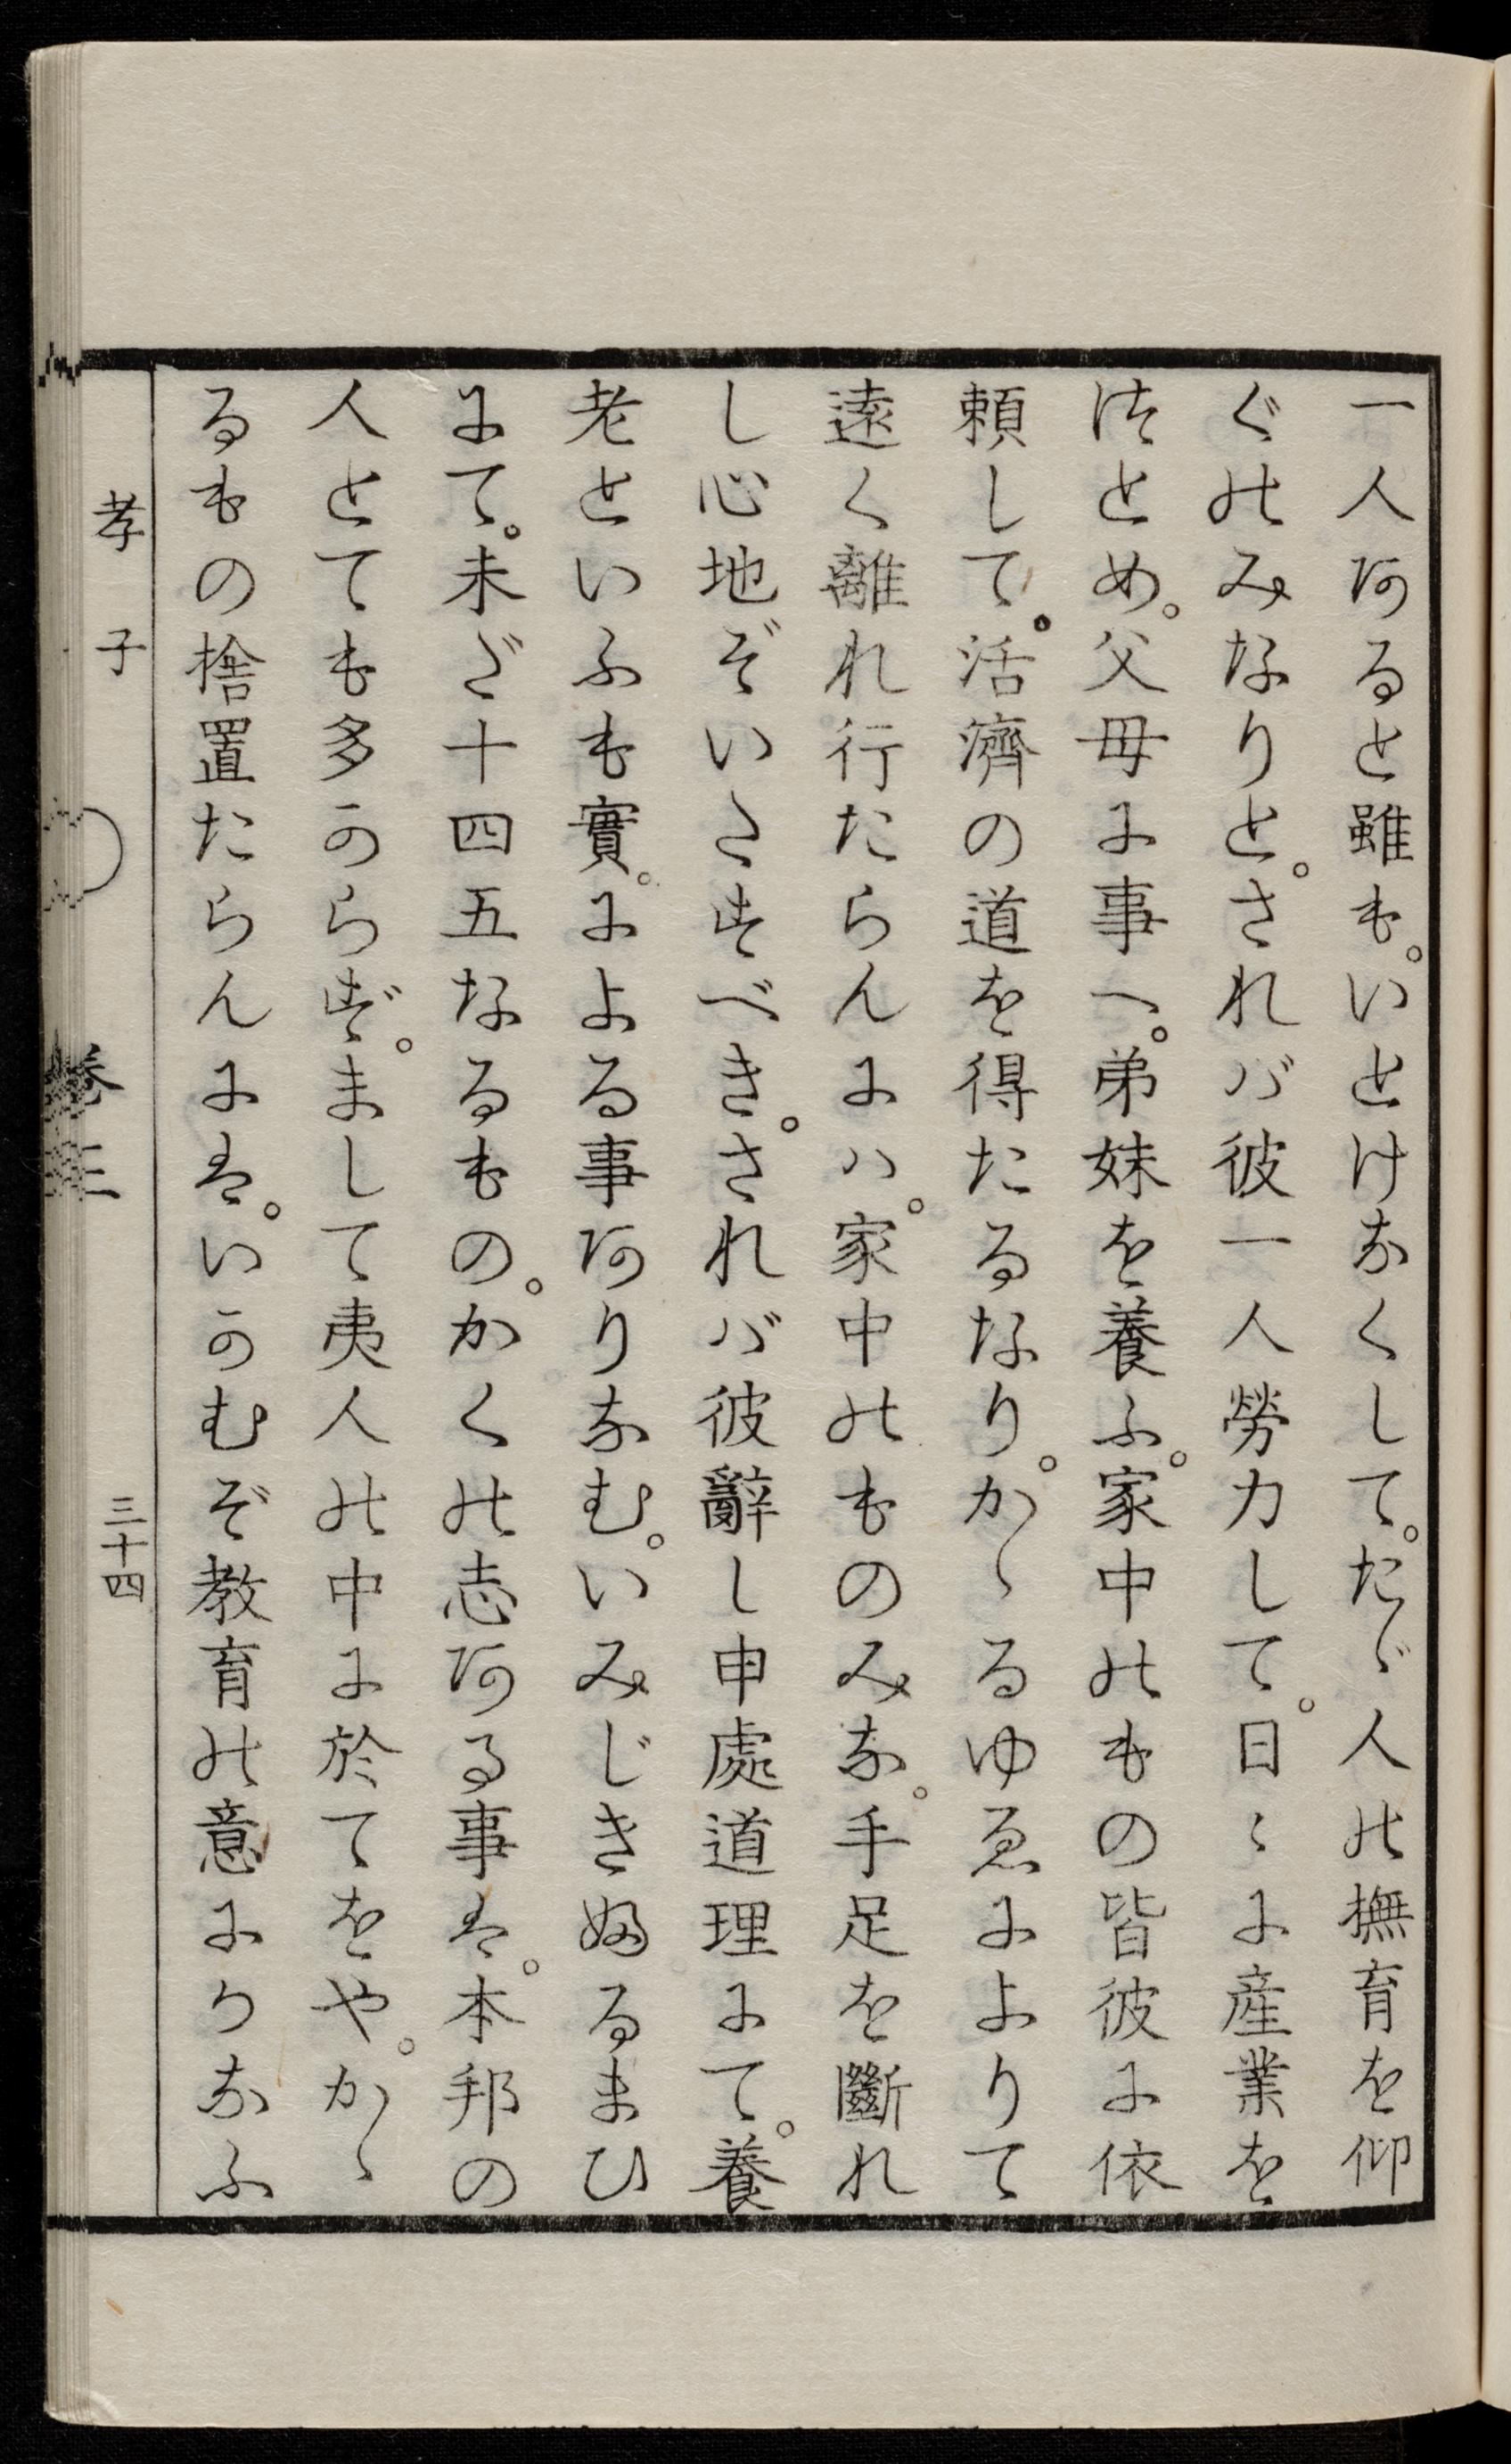 一人あると雖も。いとけなくして。たゞ人の撫育を仰
ぐのみなりと。されバ彼一人勞力して。日〻に産業を
つとめ。父母に事へ。弟妹を養ふ。家中のもの皆彼に依
頼して。活濟の道を得たるなり。かゝるゆゑによりて
遠く離れ行たらんにハ。家中のものみな。手足を斷れ
し心地ぞいたすべき。されバ彼辭し申處道理にて。養
老といふも實。による事ありなむ。いみじき婦るまひ
にて。未だ十四五なるもの。かくの志ある事は。本邦の
人とても多からず。まして夷人の中に於てをや。かゝ
るもの捨置たらんには。いかむぞ教育の意にりなふ
孝子
卷三
三十四